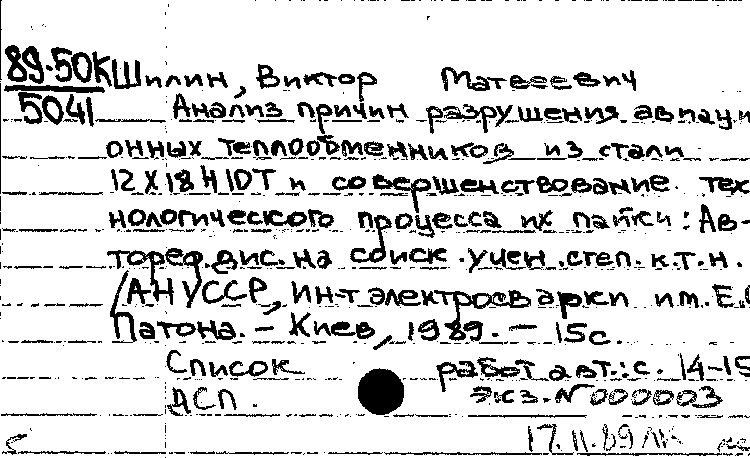 89-50К Шилин, Виктор Матвеевич
5041 Анализ причин разрушения авиаци
онных теплообменников из стали
12Х18Н10Т и совершенствование тех
нологического процесса их пайки: Ав-
тореф. дис. на соиск. учен. степ. к.т.н.
/АН УССР, Ин-т электросварки им. Е.О
Патона. – Киев, 1989. – 15с.
Список работ авт.: с. 14-15
ДСП. Экз. № 000003
17.11.89